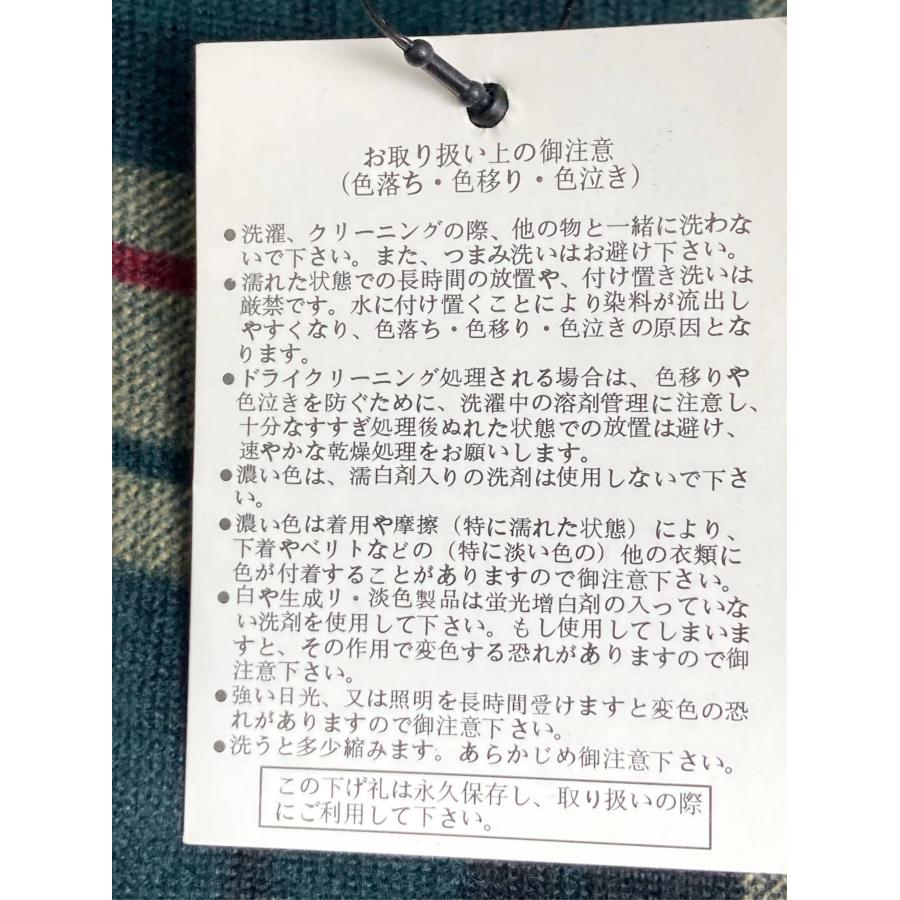 お取り扱い上の御注意
(色落ち・色移り・色泣き)
●洗濯、クリーニングの際、他の物と一緒に洗わな
いで下さい。また、つまみ洗いはお避け下さい。
●濡れた状態での長時間の放置や、付け置き洗いは
厳禁です。水に付け置くことにより染料が流出し
やすくなり、色落ち・色移り・色泣きの原因とな
ります。
●ドライクリーニング処理される場合は、色移りや
色泣きを防ぐために、洗濯中の溶剤管理に注意し、
十分なすすぎ処理後ぬれた状態での放置は避け、
速やかな乾燥処理をお願いします。
●濃い色は、濡白剤入りの洗剤は使用しないで下さ
い。
●濃い色は着用や摩擦(特に濡れた状態)により、
下着やベリトなどの(特に淡い色の)他の衣類に
色が付着することがありますので御注意下さい。
●白や生成リ・淡色製品は蛍光増白剤の入っていな
い洗剤を使用して下さい。もし使用してしまいま
すと、その作用で変色する恐れがありますので御
注意下さい。
●強い日光、又は照明を長時間受けますと変色の恐
れがありますので御注意下さい。
●洗うと多少縮みます。あらかじめ御注意下さい。
この下げ札は永久保存し、取り扱いの際
にご利用して下さい。